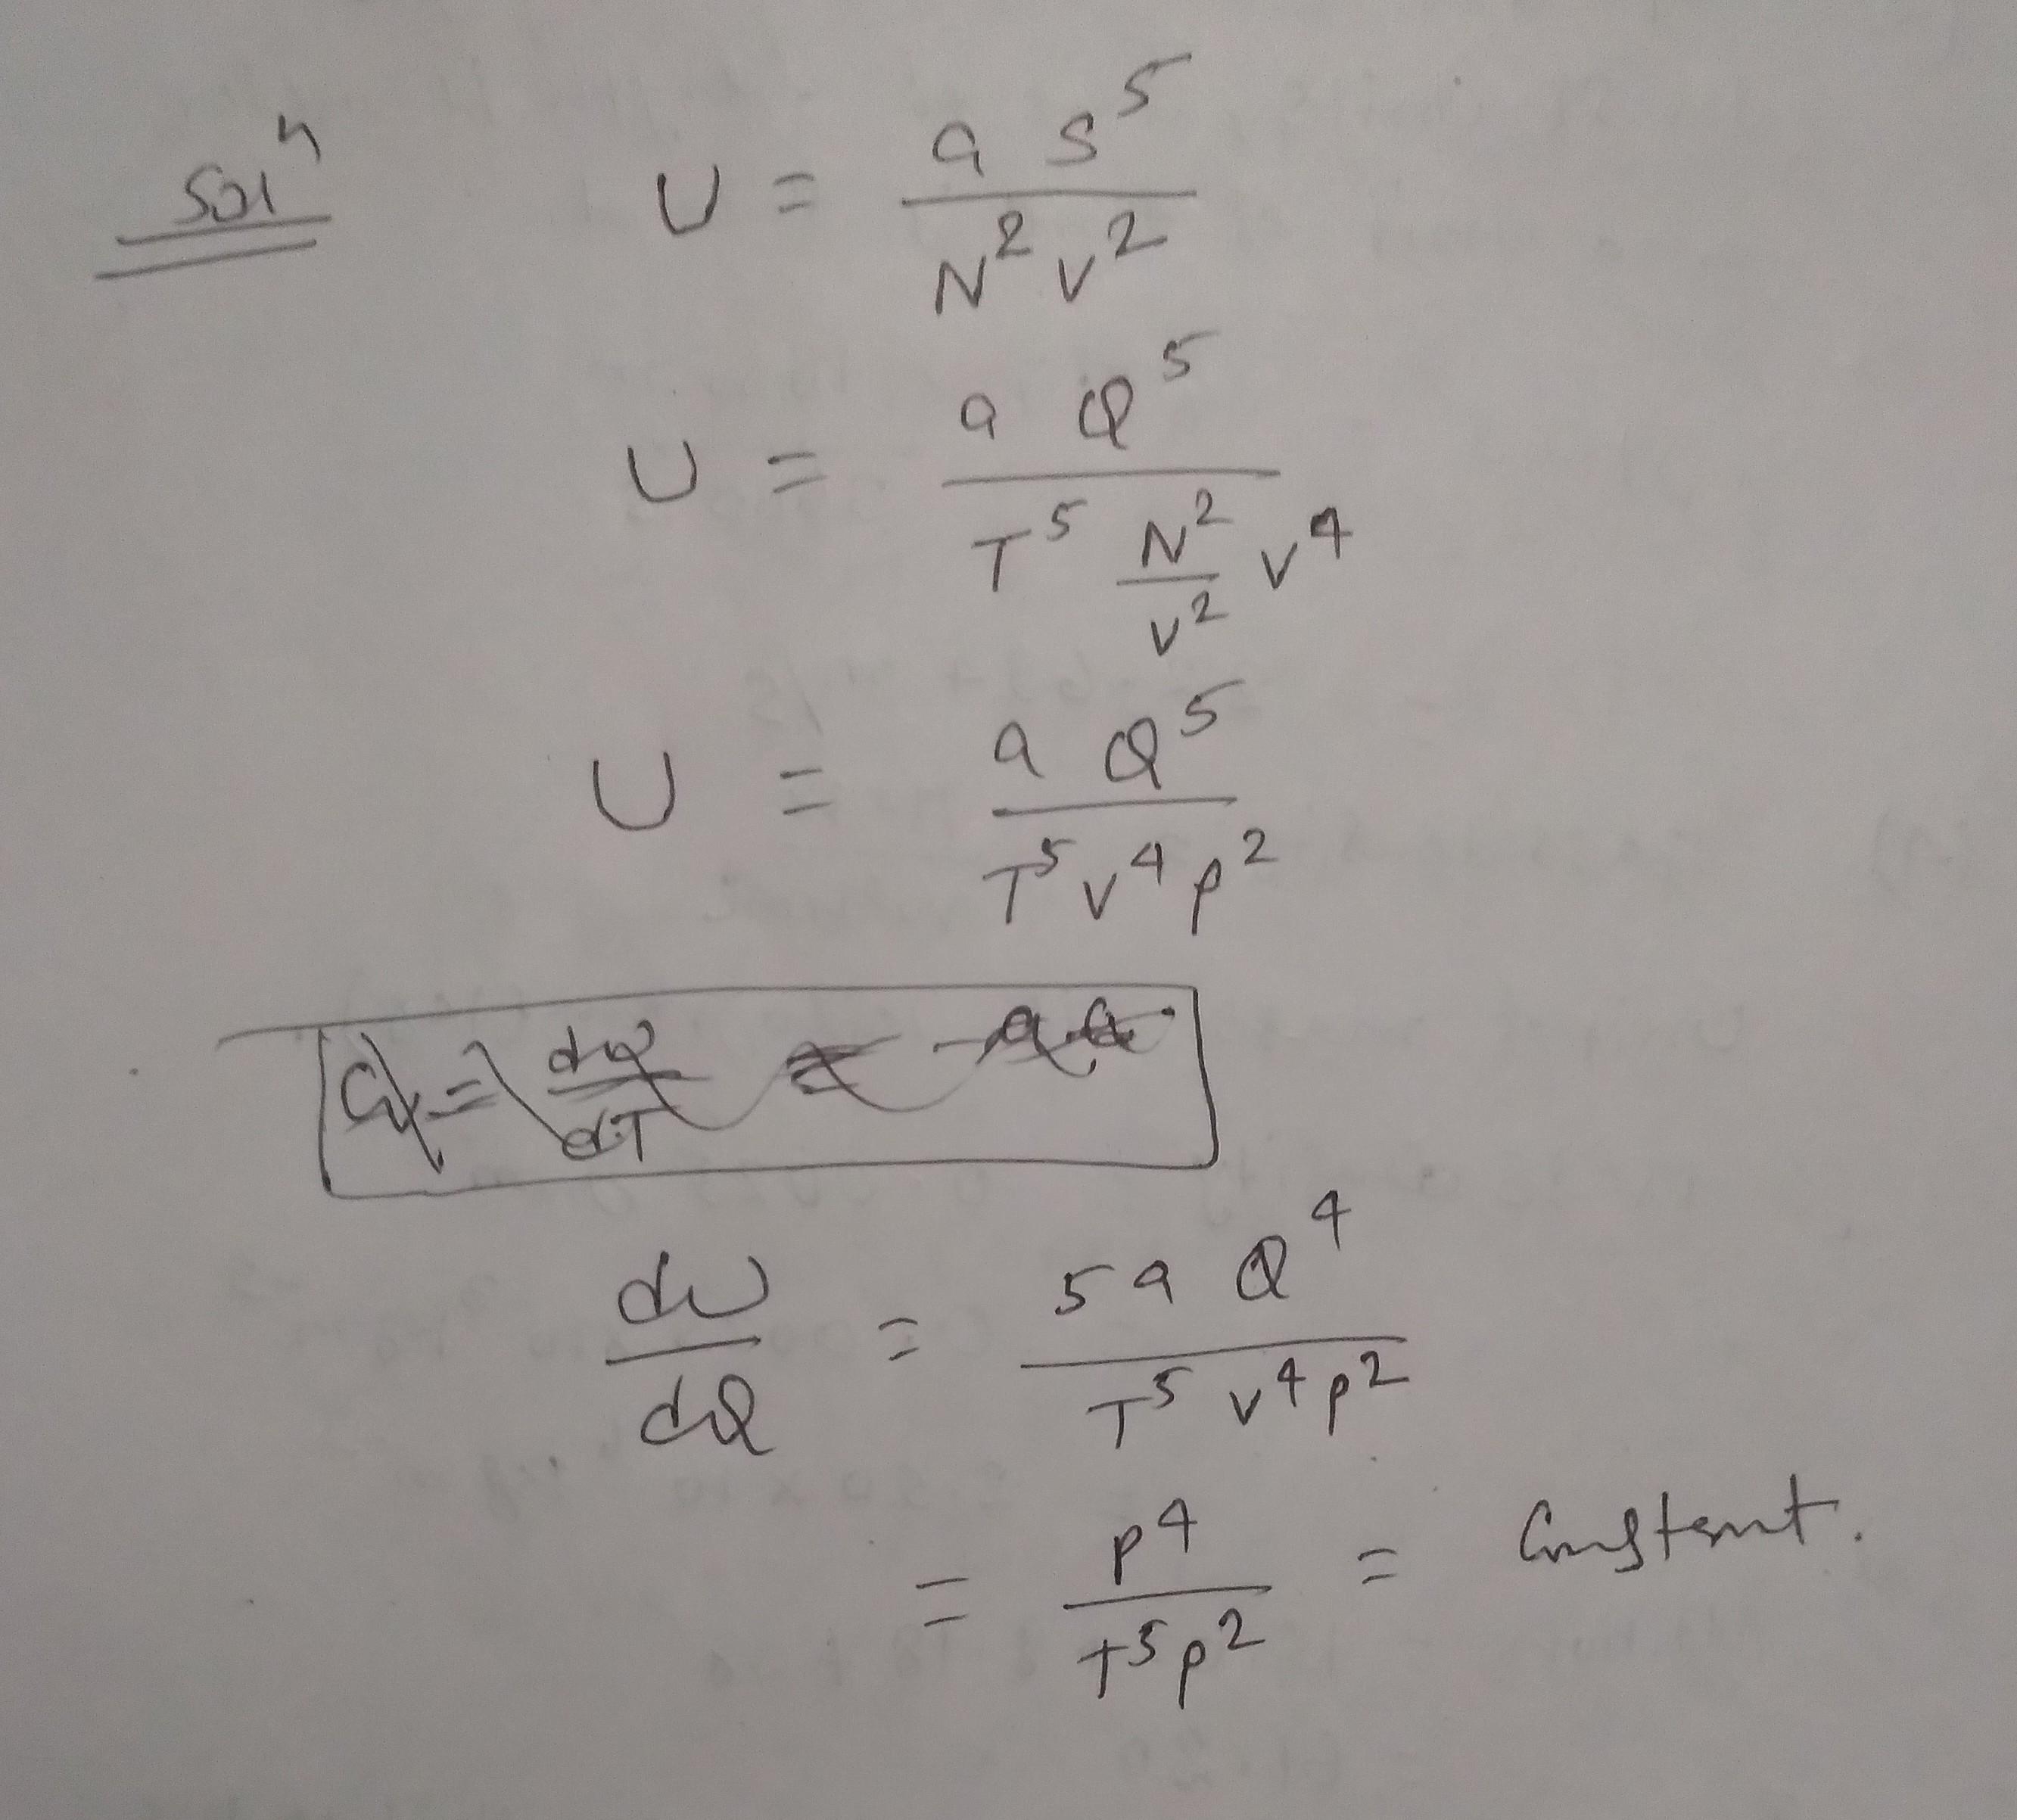 Solⁿ U = a S⁵ / N² V²
U = a Q⁵ / T⁵ (N² / V²) V⁴
U = a Q⁵ / T⁵ V⁴ P²
= dQ / dT
dU / dQ = 5 a Q⁴ / T⁵ V⁴ P²
= P⁴ / T⁵ P² = Constant.